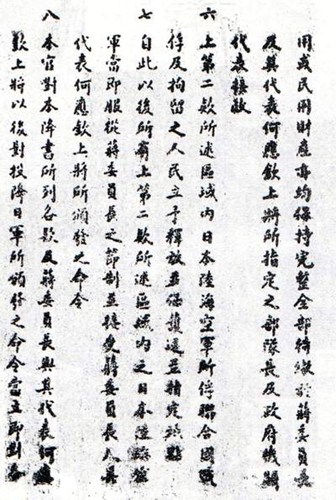 用或民用財產亦均保持完整全部待繳於蔣委員長
及其代表何應欽上將所指定之部隊長及政府機關
代表接收
六 上第二款所述區域內日本陸海空軍所俘聯合國戰
俘及拘留之人民立予釋放並保護送至指定地點
七 自此以後所有上第二款所述區域內之日本陸海空
軍當即服從蔣委員長之節制並接受蔣委員長及其
代表何應欽上將所頒發之命令
八 本官對本降書所列各款及蔣委員長與其代表何應
欽上將以後對投降日軍所頒發之命令當立即對各